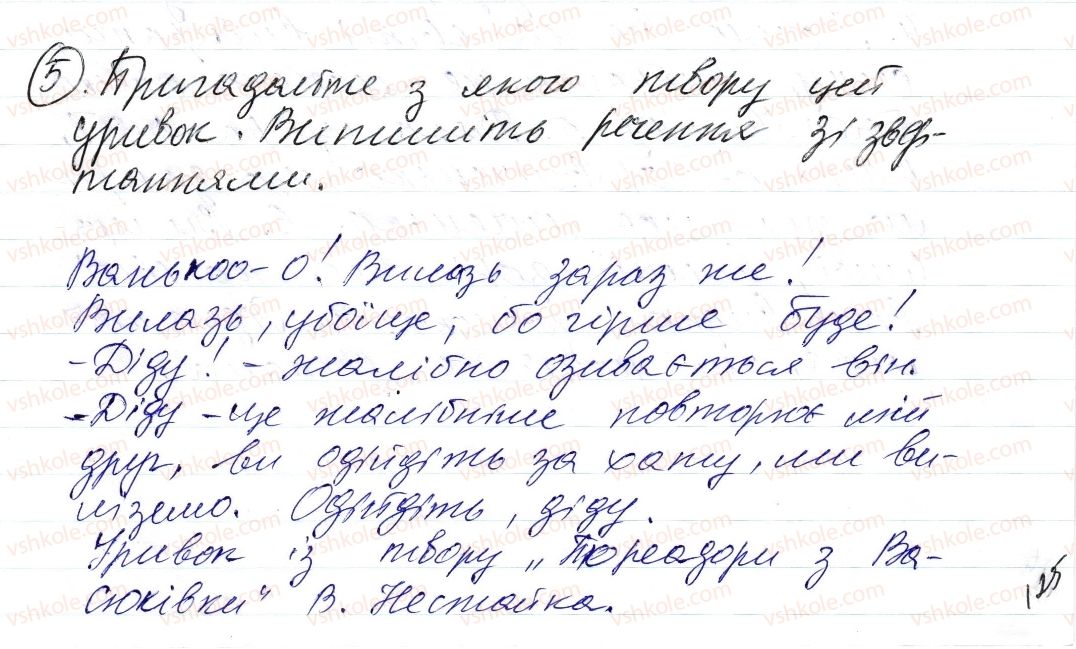 5. Пригадайте з якого твору цей
уривок. Випишіть речення зі звер-
таннями.
Ванькоо-о! Вилазь зараз же!
Вилазь, убоїще, бо гірше буде!
-Діду! - жалібно озивається він.
-Діду - ще жалібніше повторює мій
друг, ви одійдіть за хату, ми ви-
ліземо. Одійдіть, діду.
Уривок із твору „Тореадори з Ва-
сюківки" В. Нестайка.
125
vshkole.com